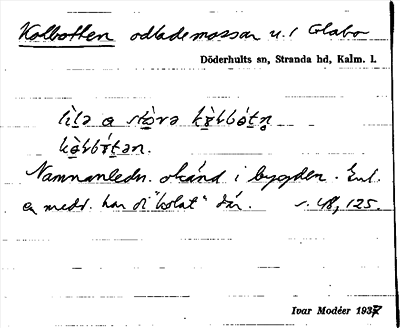 Kolbotten odlade mossar u. i Glabo
Döderhults sn, Stranda hd, Kalm. l.
li̠lə a sto̠rə kò̠lbó̠tn̥
kò̠lbó̠tən.
Namnanledn. okänd i bygden. Enl.
en medd. har di "kolat" där. s. 48, 125.
Ivar Modéer 1937